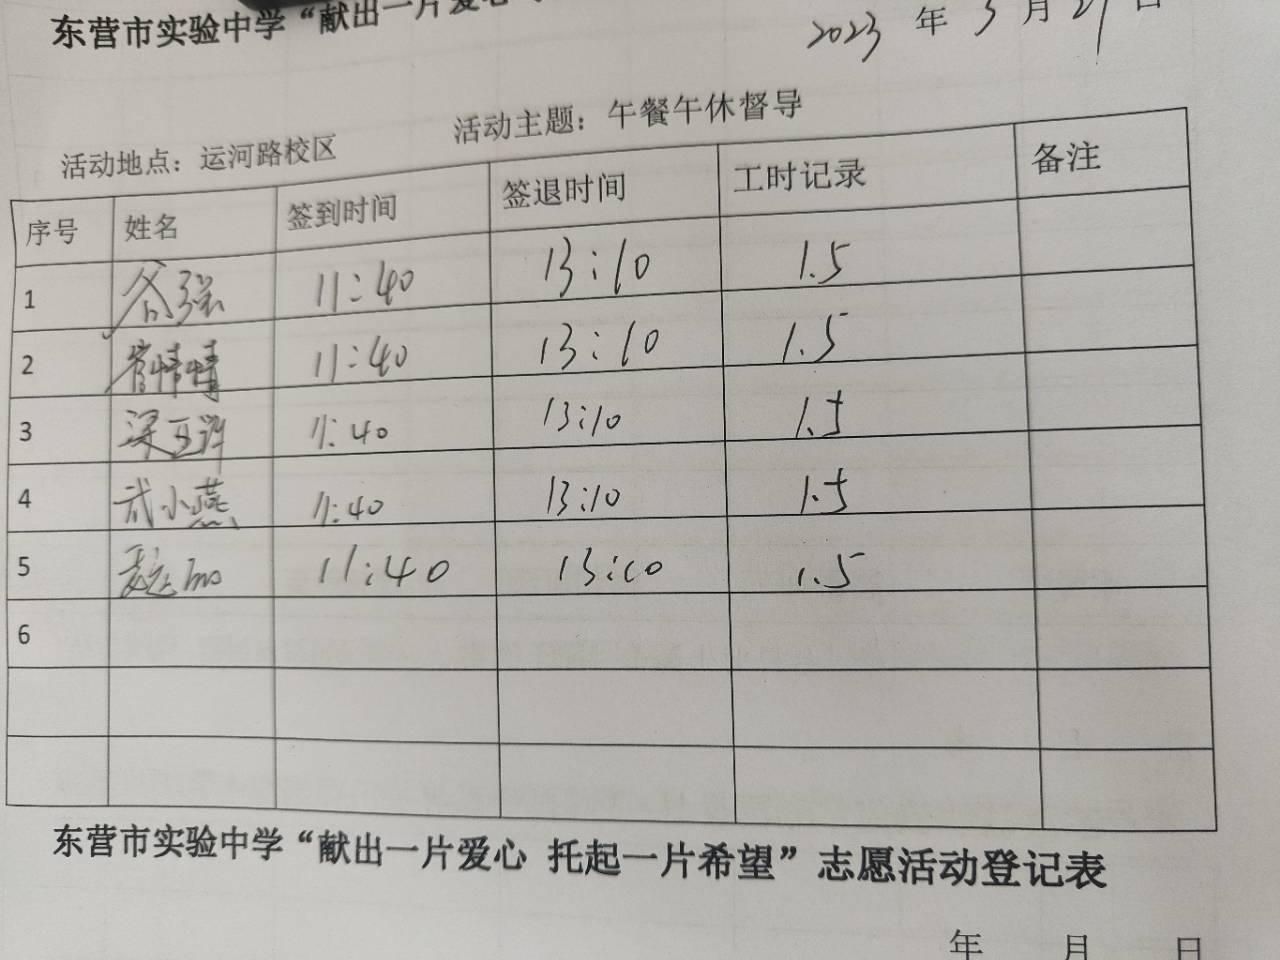 东营市实验中学“献出一片爱心
2023 年 3 月 日
活动地点：运河路校区 活动主题：午餐午休督导
序号 姓名 签到时间 签退时间 工时记录 备注
1 谷强 11:40 13:10 1.5
2 11:40 13:10 1.5
3 11:40 13:10 1.5
4 武小燕 11:40 13:10 1.5
5 11:40 13:10 1.5
6
东营市实验中学“献出一片爱心 托起一片希望”志愿活动登记表
年 月 日